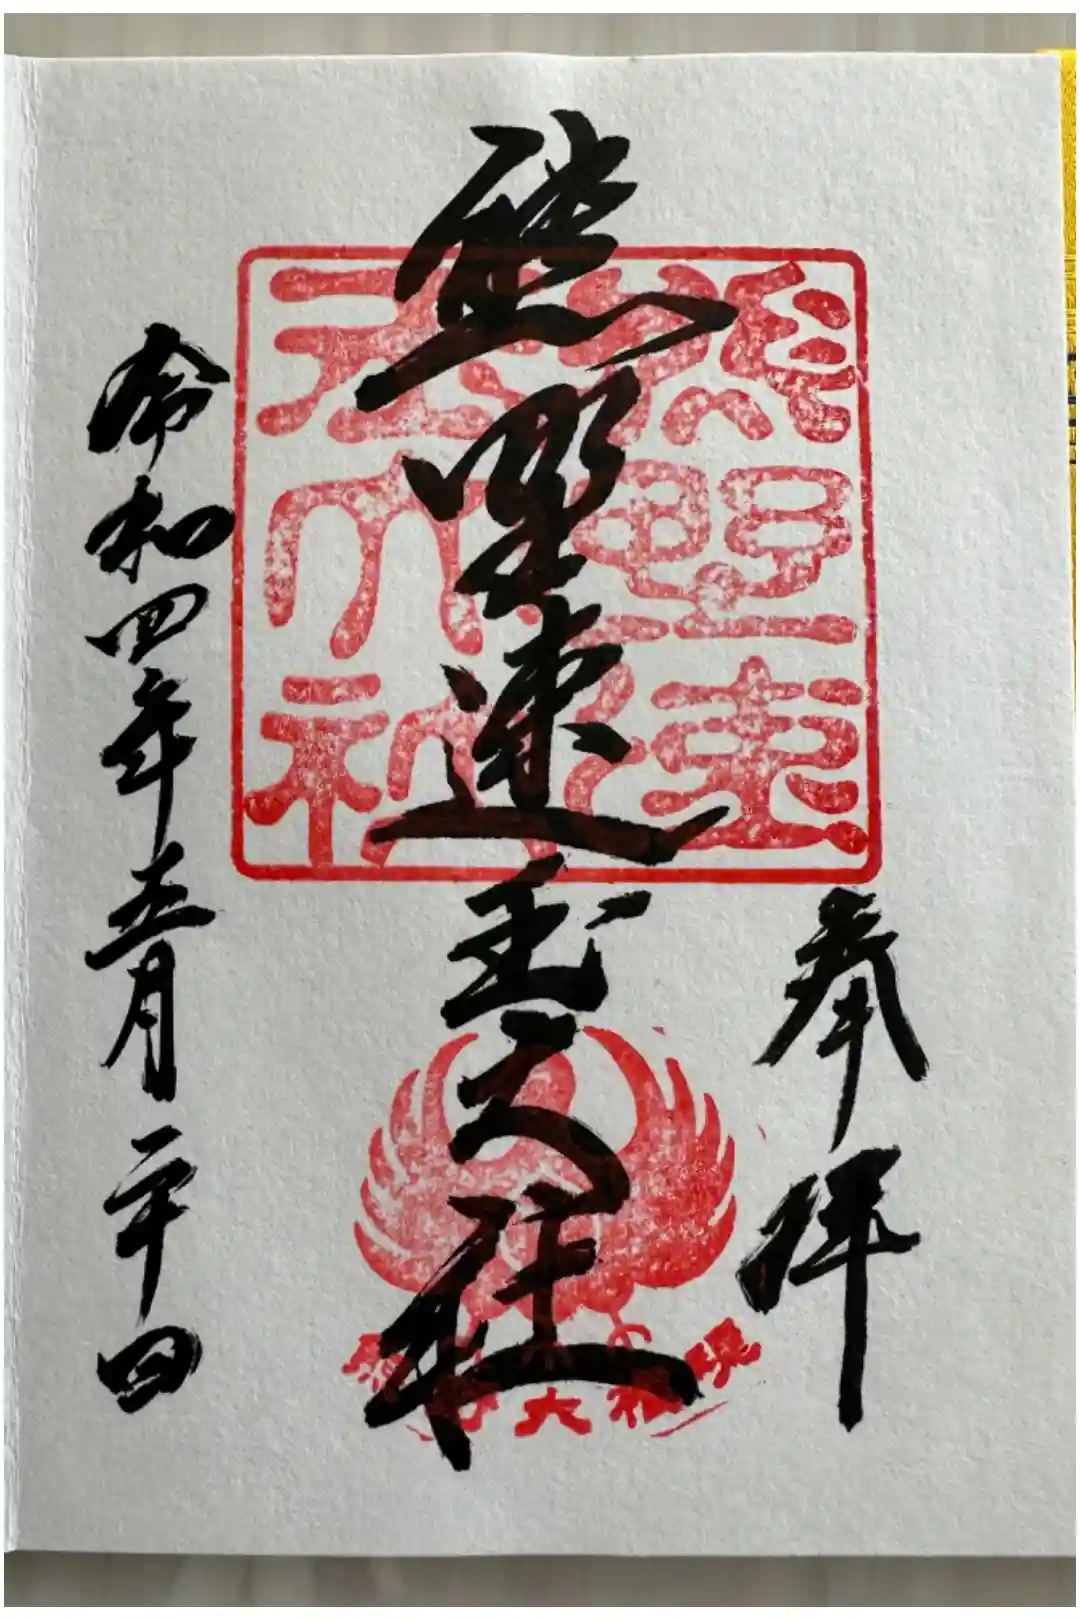 奉拝
熊野速玉大社
熊野速
玉大社
熊野大権現
令和四年五月二十四